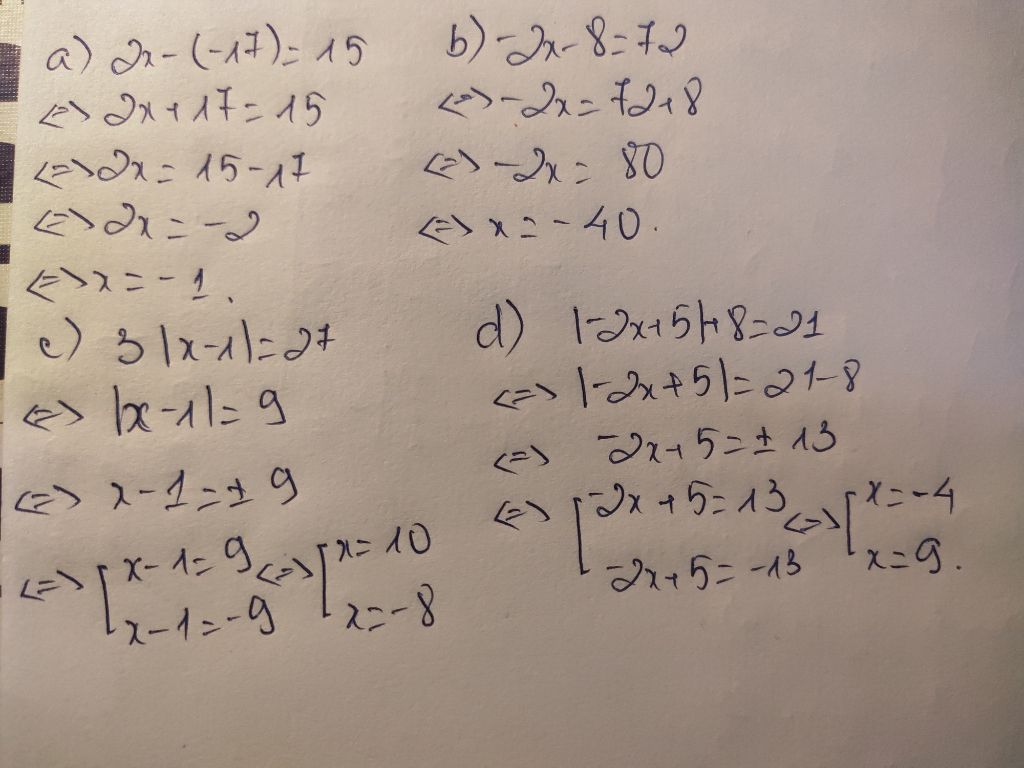 a) 2x-(-17)=15
<=> 2x+17=15
<=> 2x=15-17
<=> 2x=-2
<=> x=-1.
b) -2x-8=72
<=> -2x=72+8
<=> -2x=80
<=> x=-40.
c) 3|x-1|=27
<=> |x-1|=9
<=> x-1=±9
<=> [x-1=9 <=> [x=10
x-1=-9 x=-8
d) |-2x+5|+8=21
<=> |-2x+5|=21-8
<=> -2x+5=±13
<=> [-2x+5=13 <=> [x=-4
-2x+5=-13 x=9.